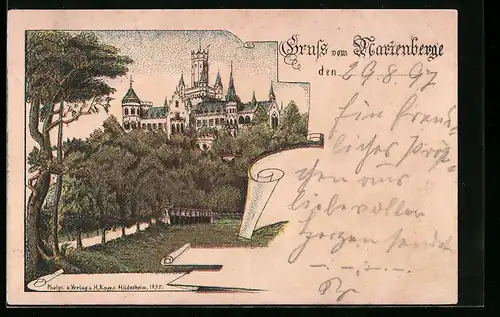 Gruss vom Marienberge
den 29.8.97
Ein freund-
liches Grüß-
chen aus
liebevollen
Herzen sendet
Photgr. u Verlag v. H. Kapps Hildesheim, 1895.